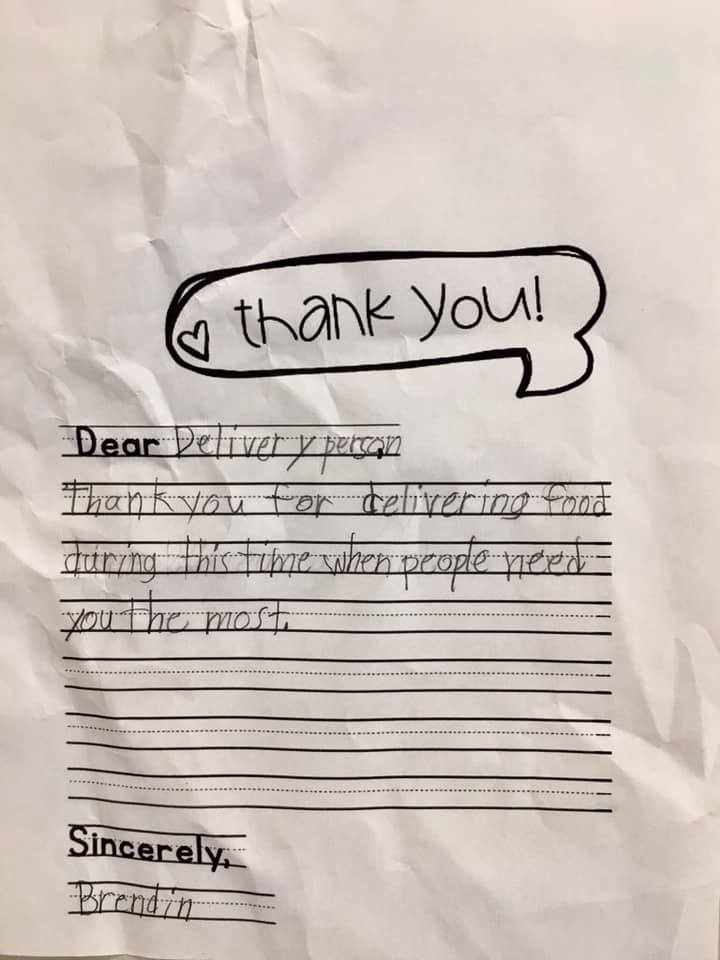 thank you!
Dear Delivery person
Thank you for delivering food
during this time when people need
you the most.
Sincerely,
Brendin